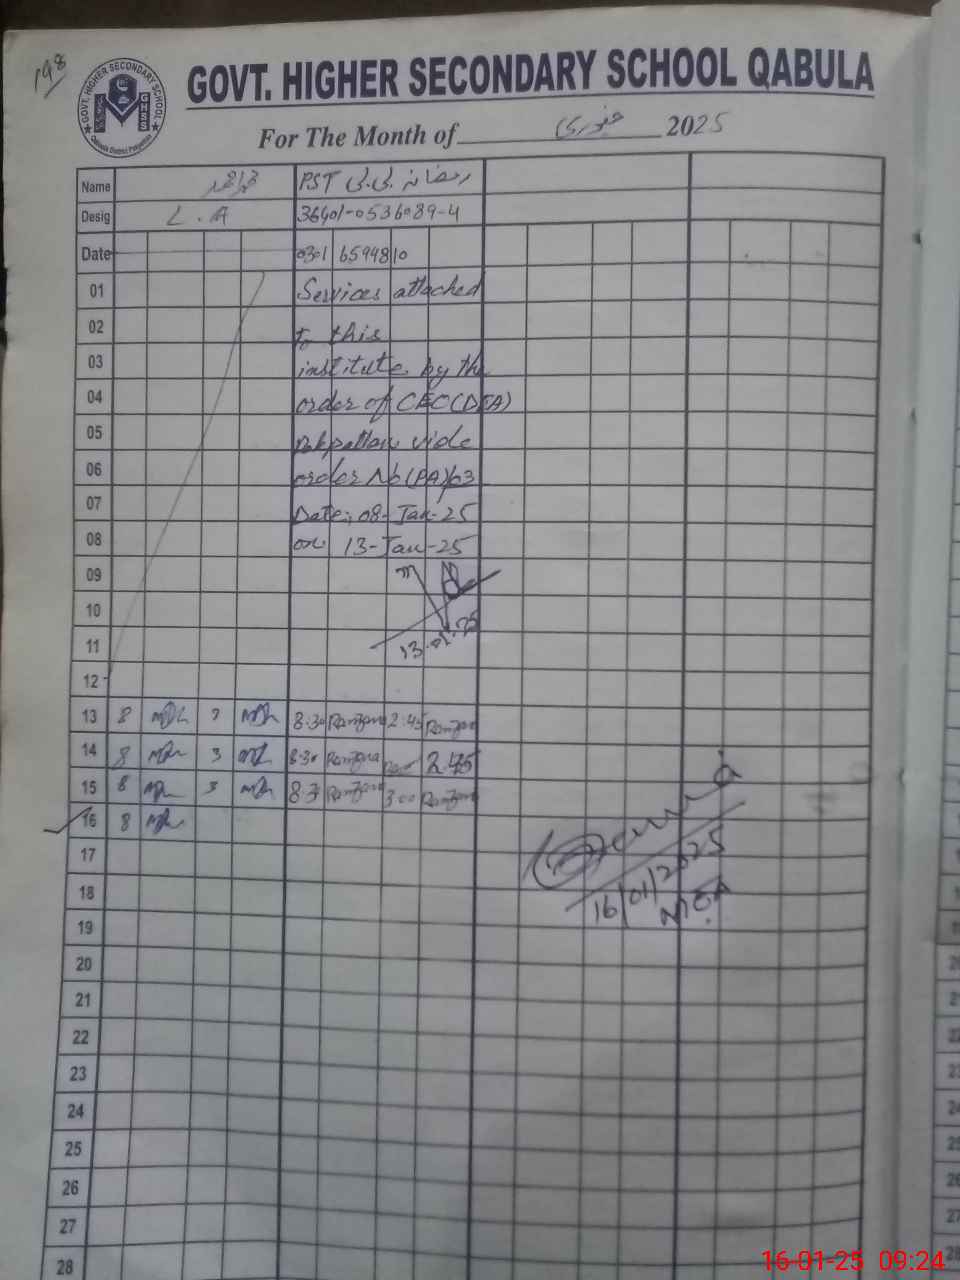 198
GOVT. HIGHER SECONDARY SCHOOL QABULA
GOVT. HIGHER SECONDARY SCHOOL
GHSS
For The Month of جنوری 2025
Name PST رضانہ بی بی
Desig L.A 36401-0536089-4
Date 0301 6599810
01 Services attached
02 to this
03 institute by the
04 order of CEO(DEA)
05 Pakpattan vide
06 order No (PA)/63
07 Date; 08-Jan-25
08 on 13-Jan-25
09
10
11 13.01.25
12
13 8 3 8:30 Ramzana 2:45 Ramzana
14 8 3 8:30 Ramzana 2:45
15 8 3 8:30 Ramzana 3:00 Ramzana
16 8
17
16/01/2025
18
MEA
19
20
21
22
23
24
25
26
27
28
16-01-25 09:24